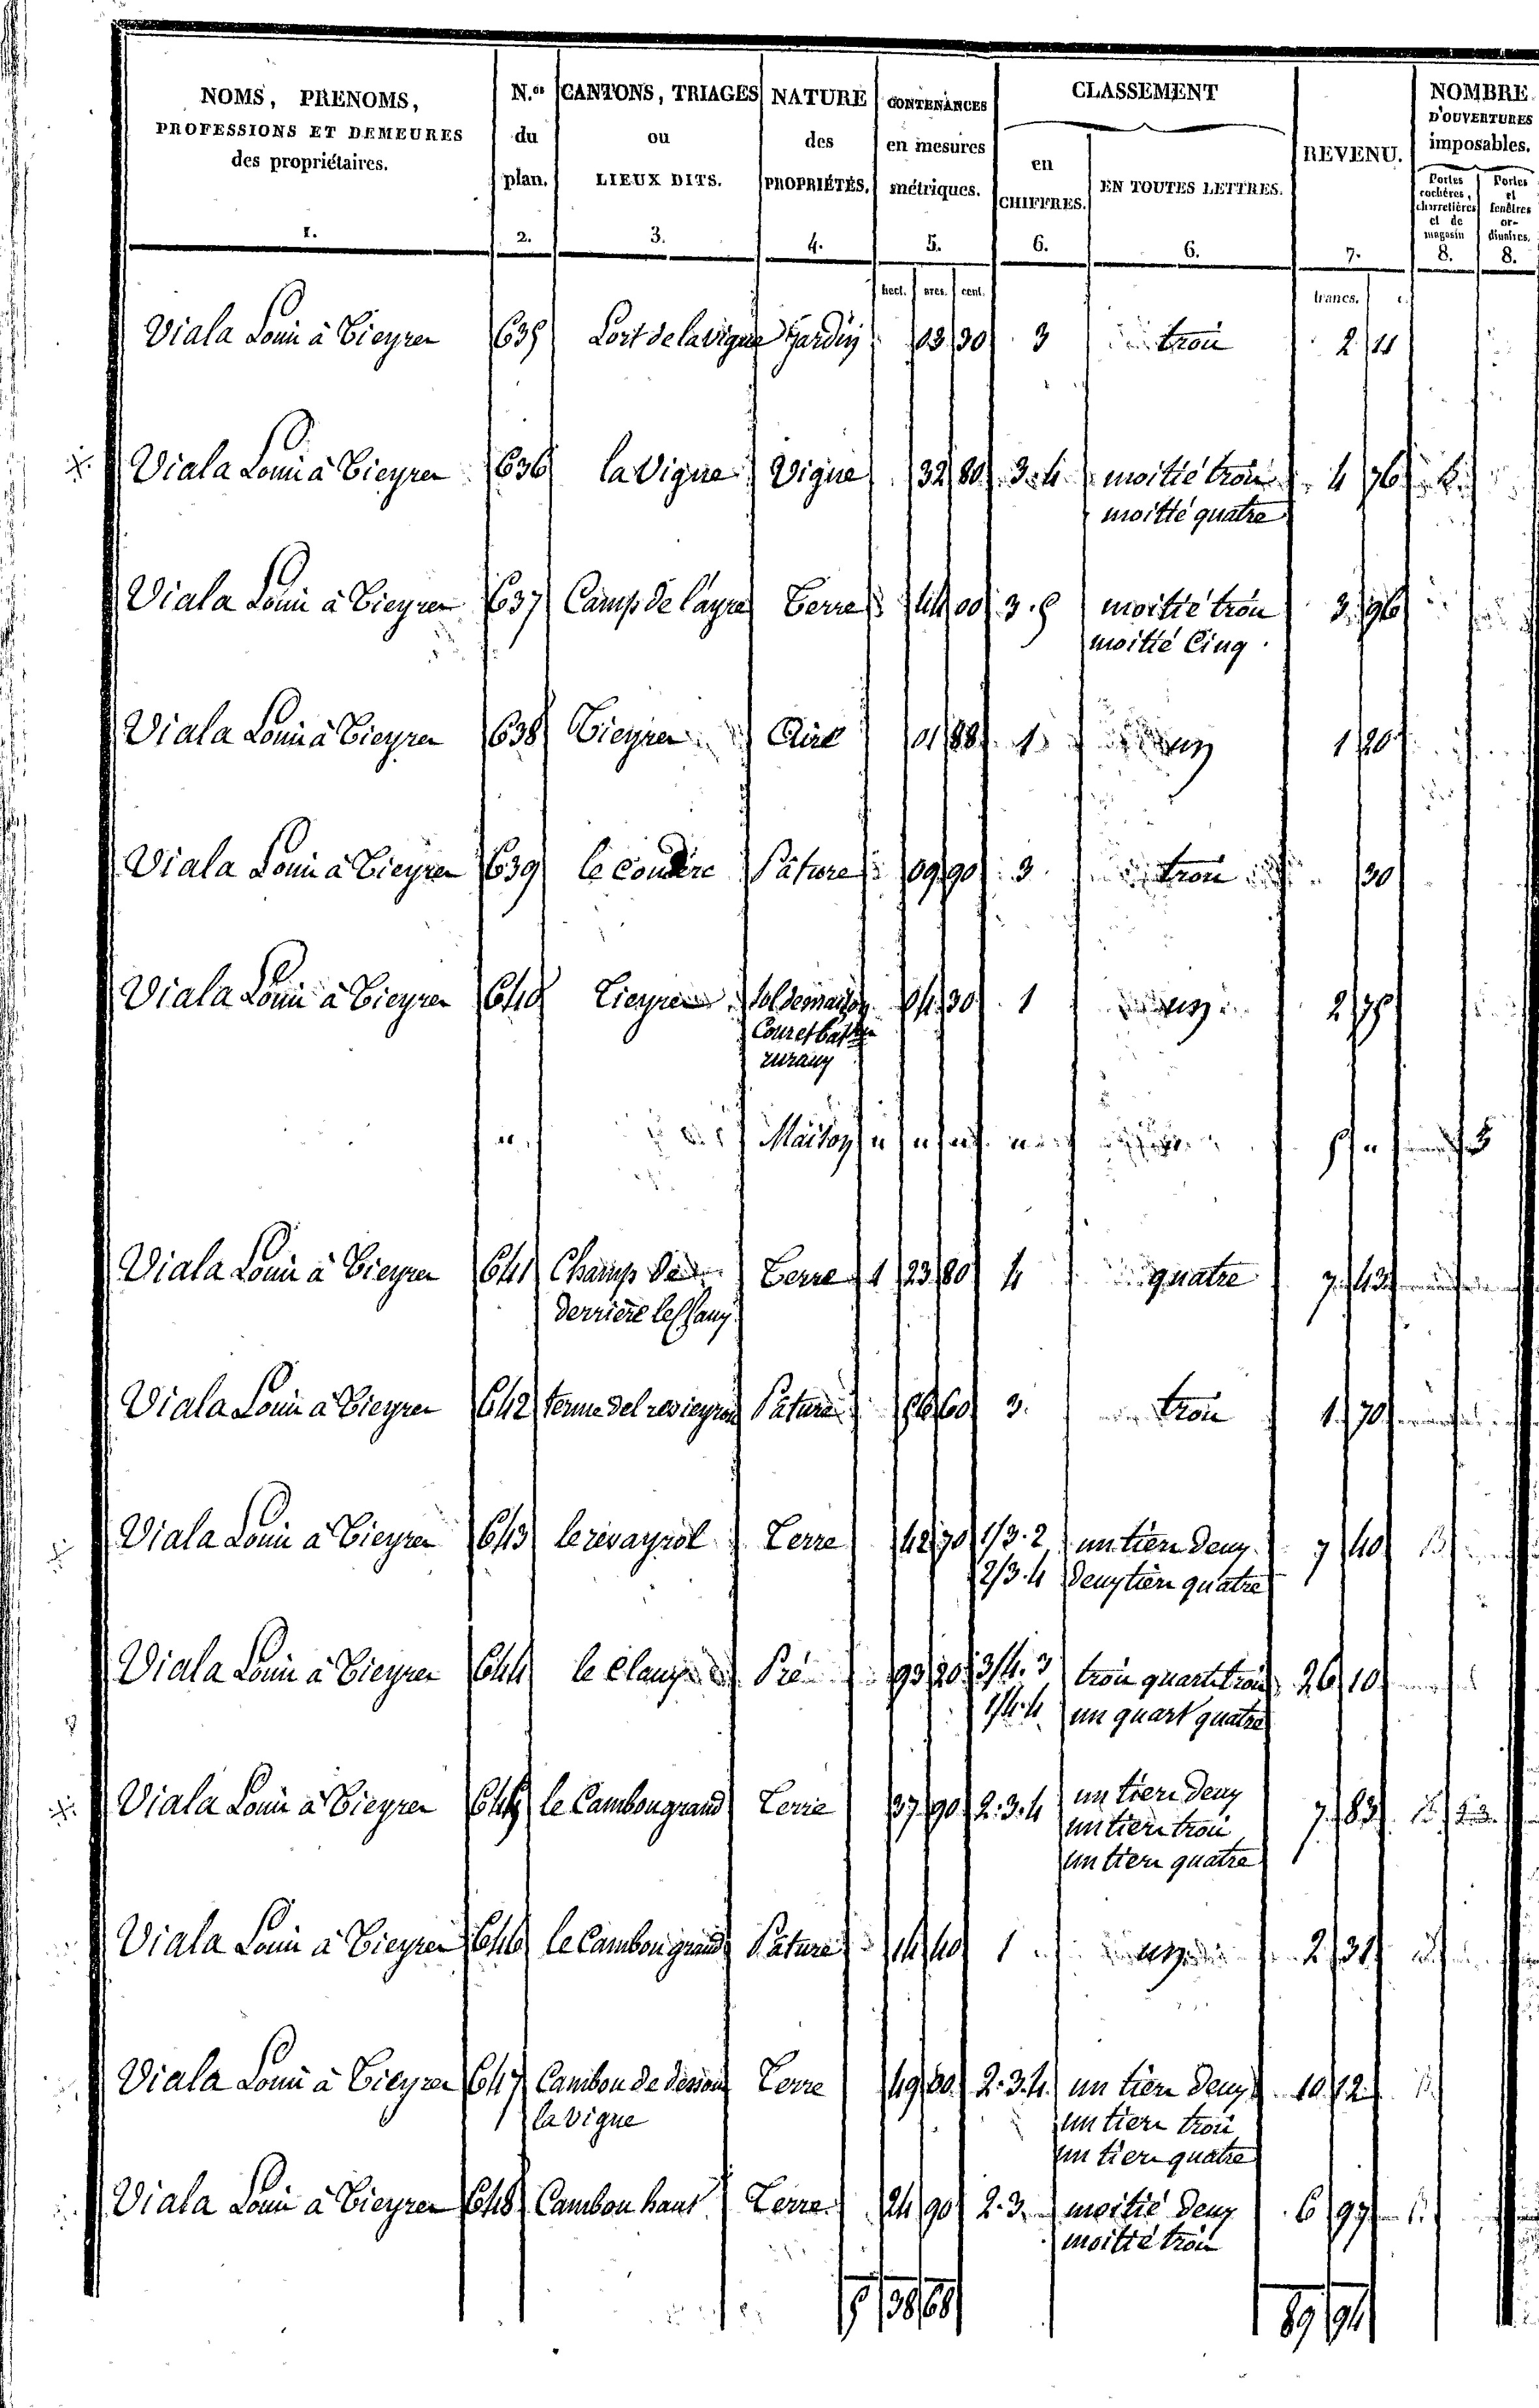 NOMS, PRENOMS, PROFESSIONS ET DEMEURES des propriétaires. 1.
N.os du plan. 2.
CANTONS, TRIAGES ou LIEUX DITS. 3.
NATURE des PROPRIÉTÉS. 4.
CONTENANCES en mesures métriques. 5.
CLASSEMENT
en CHIFFRES. 6.
EN TOUTES LETTRES. 6.
REVENU. 7.
NOMBRE D'OUVERTURES imposables.
Portes cochères, charretières et de magasin 8.
Portes et fenêtres ordinaires. 8.
hect. ares. cent. francs. c.
Viala Louis à Vieyres 635 Lort de la vigne Jardin 03 30 3 trois 2 11
Viala Louis à Vieyres 636 la Vigne Vigne 32 80 3.4. moitié trois 4 76
moitié quatre
Viala Louis à Vieyres 637 Camp de l'ayre Terre 44 00 3.5 moitié trois 3 96
moitié Cinq
Viala Louis à Vieyres 638 Vieyres Aire 01 88 1 un 1 20
Viala Louis à Vieyres 639 le Couderc Pâture 09 90 3 trois 30
Viala Louis à Vieyres 640 Vieyres Sol de maison 04 30 1 un 2 75
Cour et
Maison " " " " 5 " 5
Viala Louis à Vieyres 641 Champ de Terre 1 23 80 4 quatre 7 43
derrière
Viala Louis à Vieyres 642 Pature 56 60 3. trois 1 70
Viala Louis à Vieyres 643 le revayrol Terre 42 70 1/3.2 un tiers deux 7 40
2/3.4 deux tiers quatre
Viala Louis à Vieyres 644 le claux Pré 93 20 3/4.3 trois quarts trois 26 10
1/4.4 un quart quatre
Viala Louis à Vieyres 645 le Cambon grand Terre 37 90 2.3.4 un tiers deux 7 83
un tiers trois
un tiers quatre
Viala Louis à Vieyres 646 le Cambon grand Pature 14 40 1 un 2 31
Viala Louis à Vieyres 647 Cambon de dessous Terre 49 00 2.3.4. un tiers deux 10 12
la vigne un tiers trois
un tiers quatre
Viala Louis à Vieyres 648 Cambon haut Terre 24 90 2.3. moitié deux 6 97
moitié trois
5 38 68 89 94